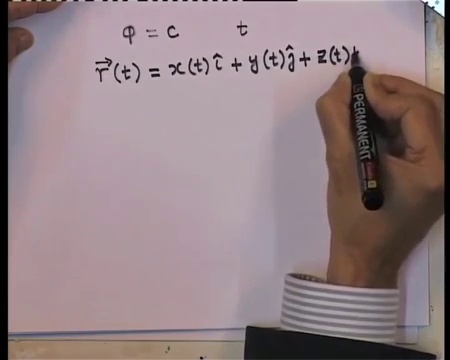 φ = c t
r⃗(t) = x(t) î + y(t) ĵ + z(t)
PERMANENT